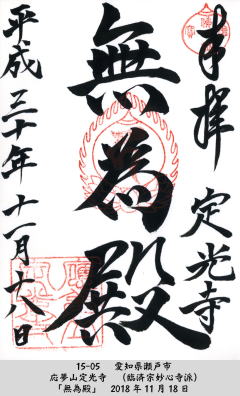 奉拝 定光寺
無為殿
平成三十年十一月十八日
15-05 愛知県瀬戸市
応夢山定光寺 (臨済宗妙心寺派)
「無為殿」 2018年11月18日